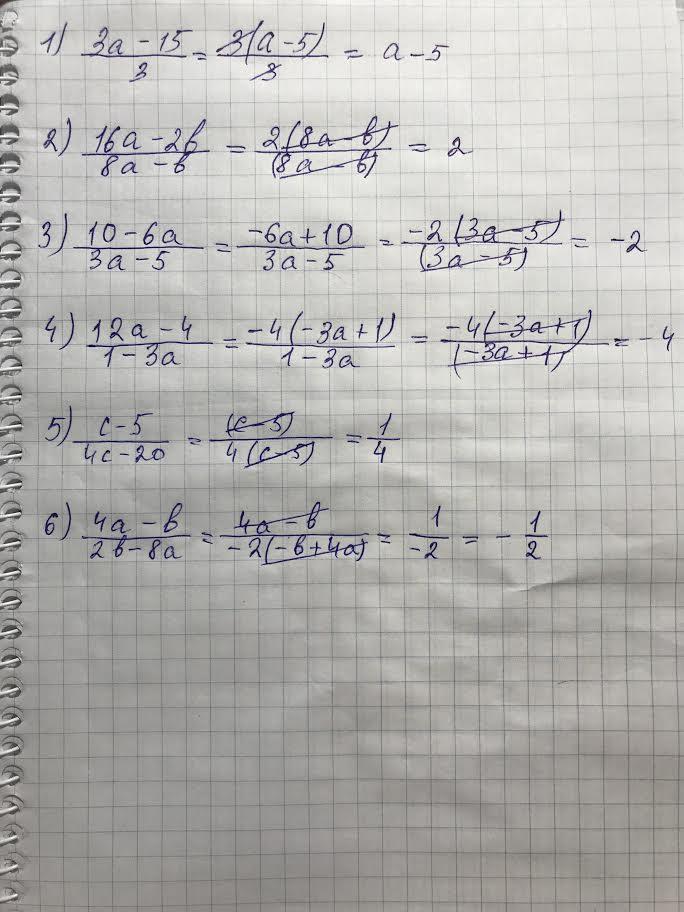 1) (3a - 15)/3 = 3(a - 5)/3 = a - 5
2) (16a - 2b)/(8a - b) = 2(8a - b)/(8a - b) = 2
3) (10 - 6a)/(3a - 5) = (-6a + 10)/(3a - 5) = -2(3a - 5)/(3a - 5) = -2
4) (12a - 4)/(1 - 3a) = -4(-3a + 1)/(1 - 3a) = -4(-3a + 1)/(-3a + 1) = -4
5) (c - 5)/(4c - 20) = (c - 5)/4(c - 5) = 1/4
6) (4a - b)/(2b - 8a) = (4a - b)/-2(-b + 4a) = 1/-2 = - 1/2